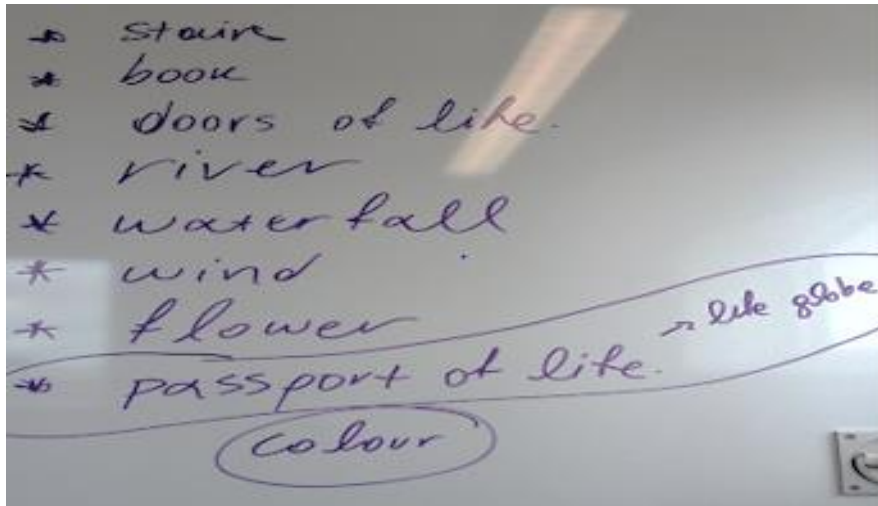 * stairs
* book
* doors of life.
* river
* waterfall
* wind
* flower
* passport of life. → life globe
colour